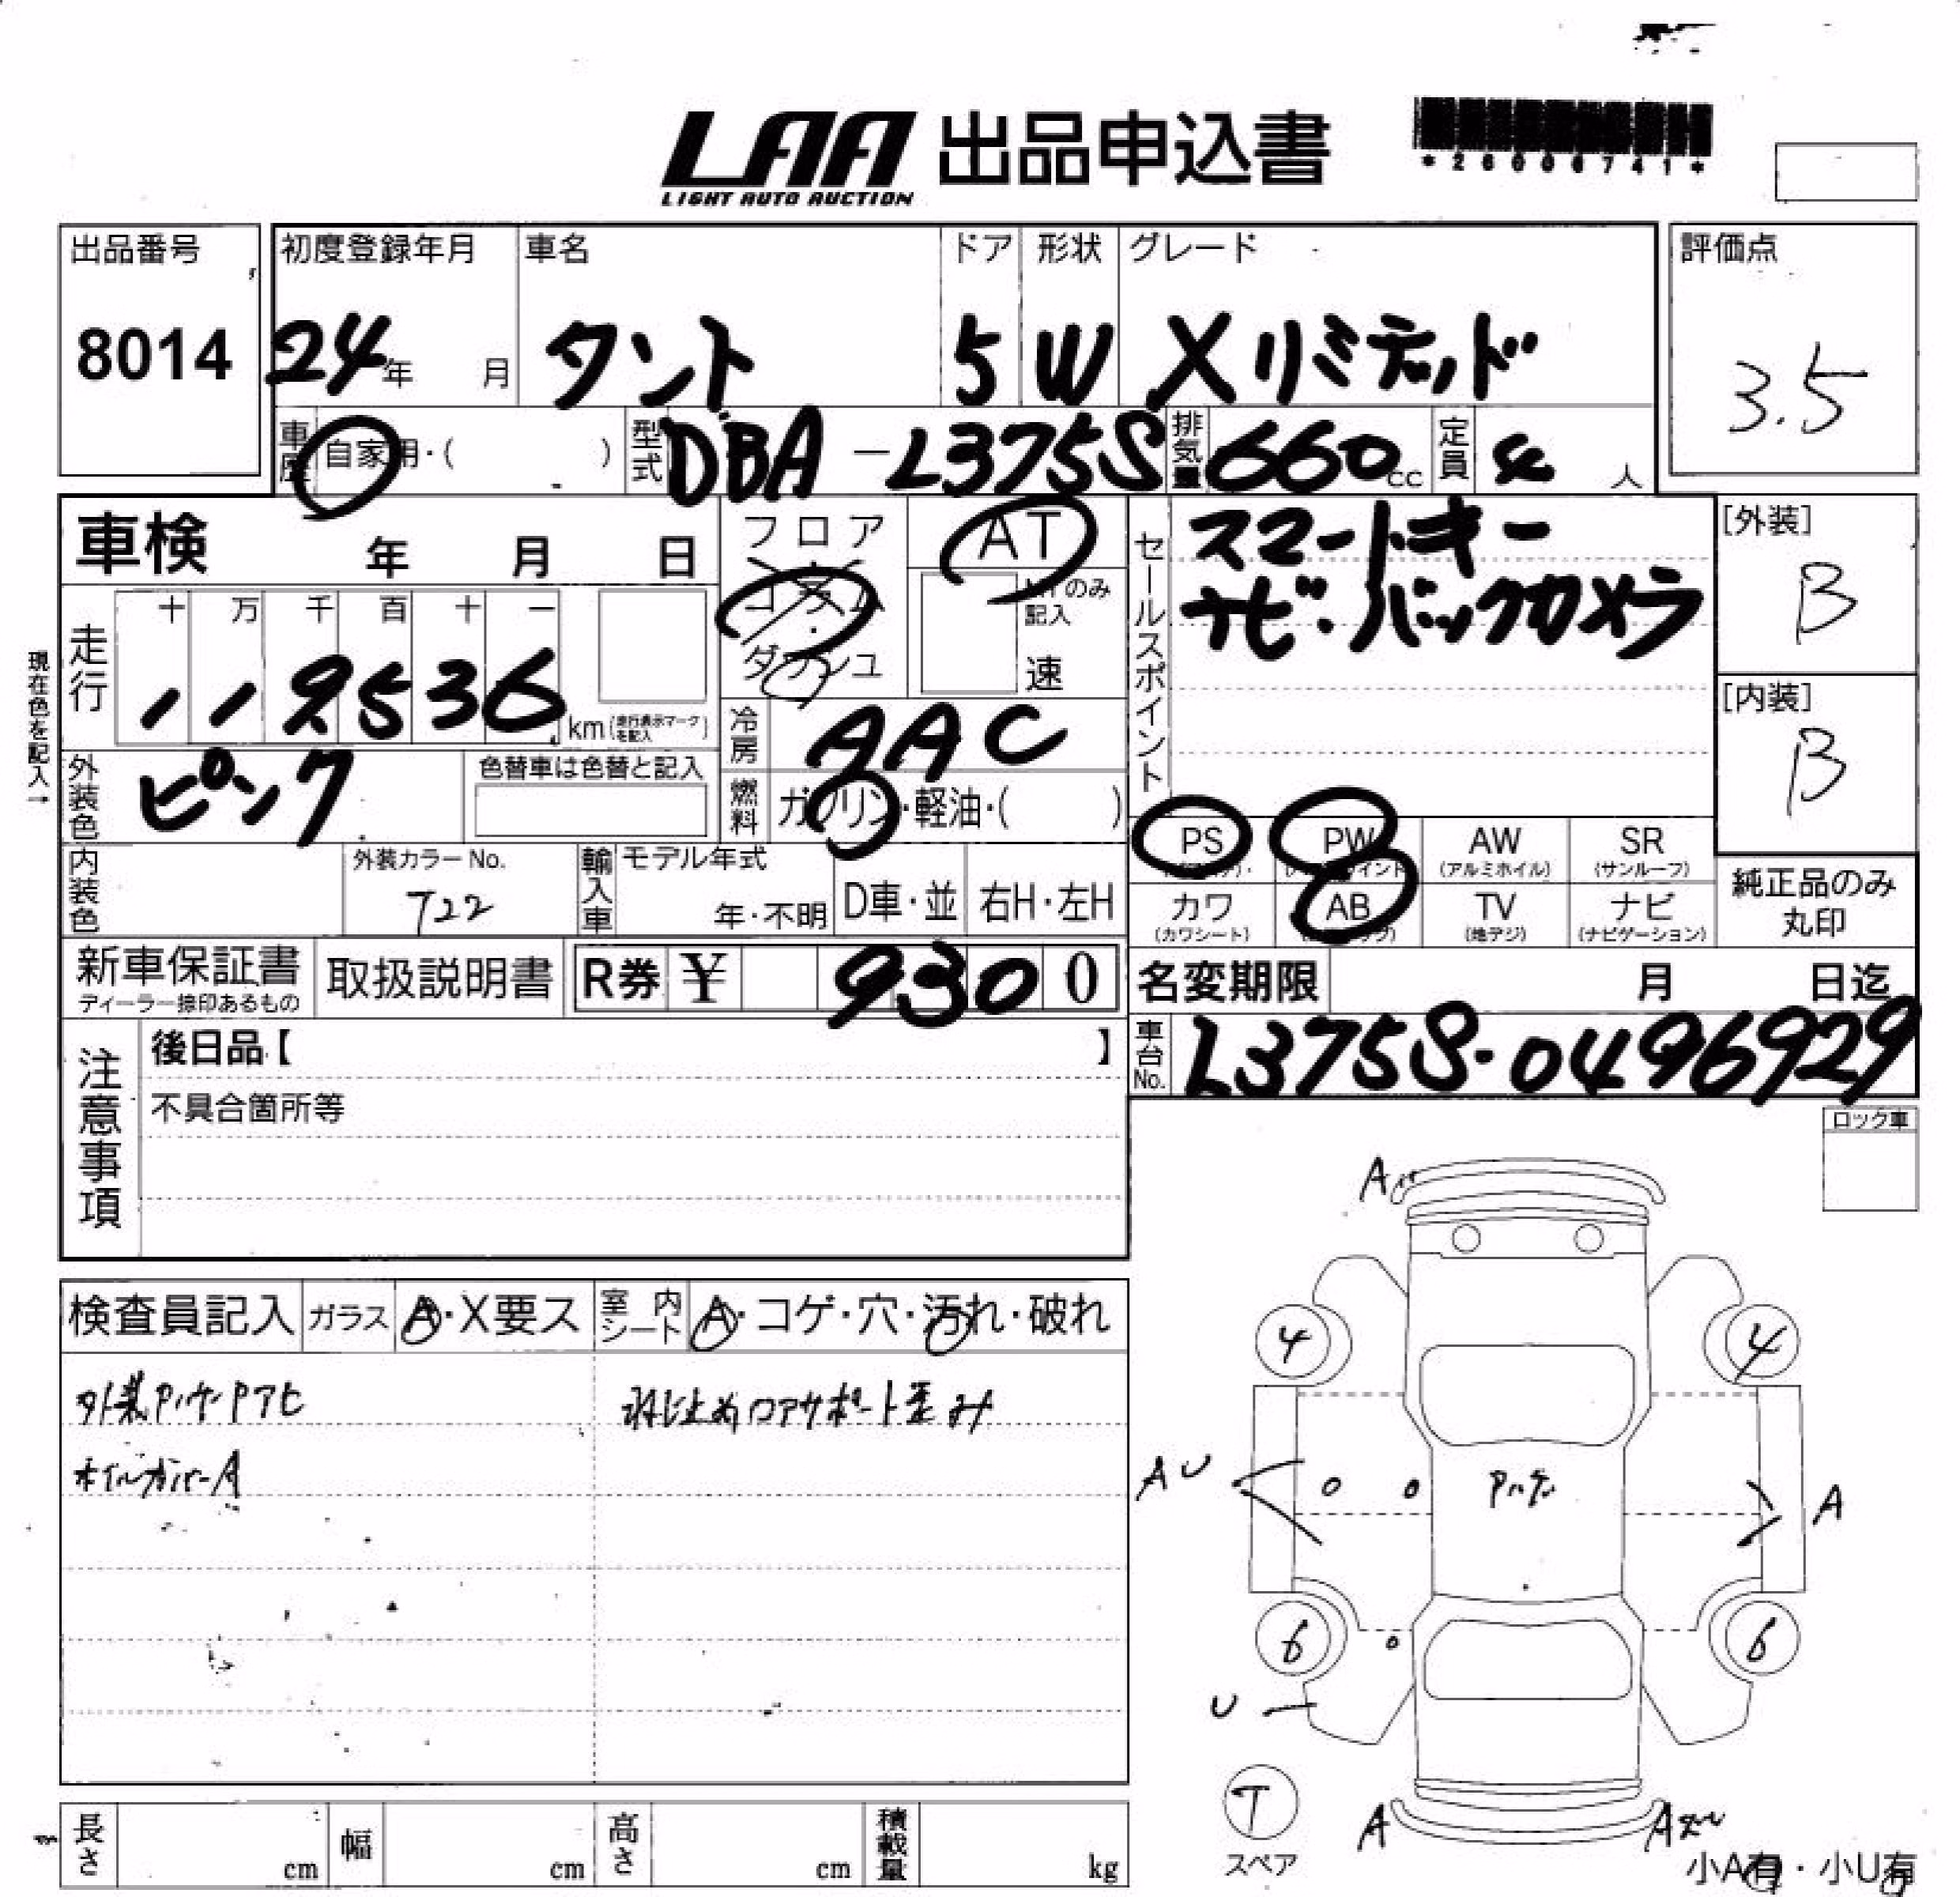 LAA 出品申込書
LIGHT AUTO AUCTION
*26006741*
出品番号
8014
初度登録年月
24年 月
車名
タント
ドア
5
形状
W
グレード
Xリミテッド
評価点
3.5
車歴
自家用・( )
型式
DBA-L375S
排気量
660cc
定員
4人
車検 年 月 日
フロア
コラム
ダッシュ
AT
MTのみ記入
速
セールスポイント
スマートキー
ナビ・バックカメラ
[外装]
B
[内装]
B
現在色を記入→
走行
十 万 千 百 十 一
119536 km(走行表示マークを記入)
冷房
AAC
外装色
ピンク
色替車は色替と記入
燃料
ガソリン・軽油・( )
PS
PW
AW
(アルミホイル)
SR
(サンルーフ)
カワ
(カワシート)
AB
TV
(地デジ)
ナビ
(ナビゲーション)
純正品のみ
丸印
内装色
外装カラーNo.
T22
輸入車
モデル年式
年・不明
D車・並
右H・左H
新車保証書
ディーラー捺印あるもの
取扱説明書
R券 ¥ 9300
名変期限 月 日迄
車台No.
L375S-0496929
注意事項
後日品【 】
不具合箇所等
ロック車
検査員記入
ガラス
A・X要ス
室内シート
A・コゲ・穴・汚れ・破れ
外装
ホイルカバーA
コアサポート歪み
A
4
4
AU
A
6
6
U
T
スペア
A
A
小A有・小U有
長さ cm
幅 cm
高さ cm
積載量 kg